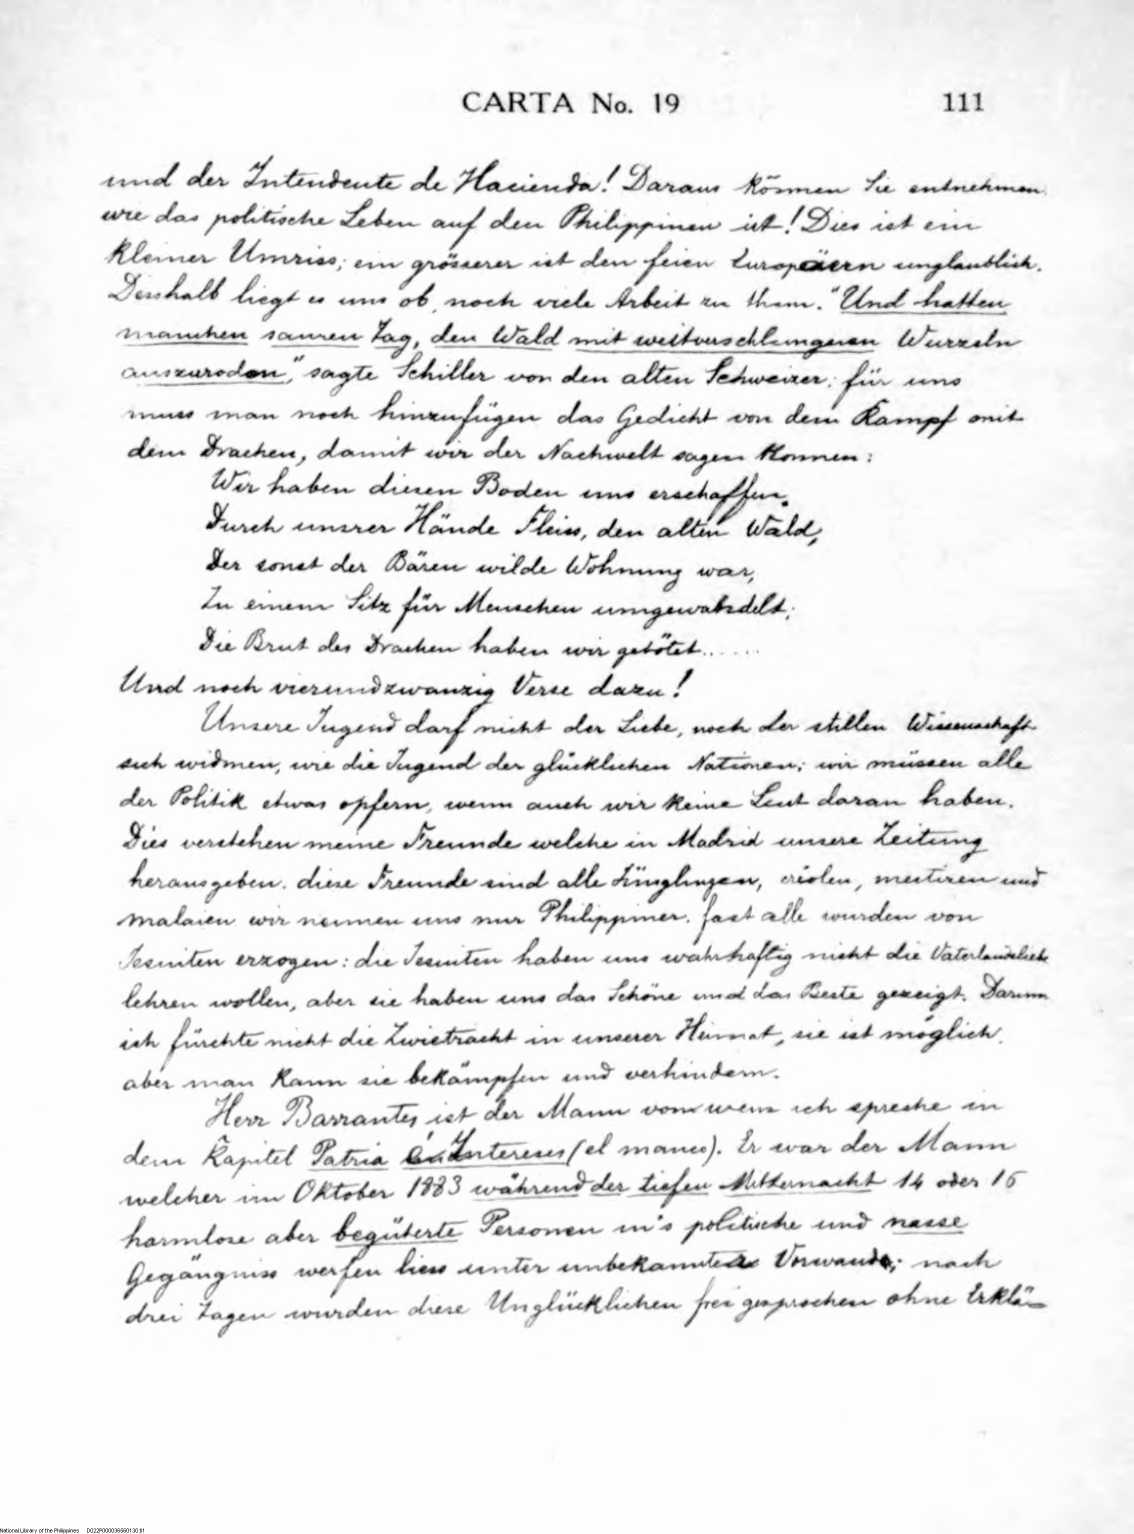 CARTA No. 19 111
und der Intendente de Hacienda! Daraus können Sie entnehmen
wie das politische Leben auf den Philippinen ist! Dies ist ein
kleiner Umriss; ein grösserer ist den feien Europäern unglaublich.
Desshalb liegt es uns ob, noch viele Arbeit zu thun. "Und hatten
manchen sauren Tag, den Wald mit weitverschlungenen Wurzeln
auszuroden", sagte Schiller von den alten Schweizer; für uns
muss man noch hinzufügen das Gedicht von dem Kampf mit
dem Drachen, damit wir der Nachwelt sagen konnen:
Wir haben diesen Boden uns erschaffen.
Durch unsrer Hände Fleiss, den alten Wald,
Der sonst der Bären wilde Wohnung war,
Zu einem Sitz für Menschen umgewandelt;
Die Brut des Drachen haben wir getötet......
Und noch vierundzwanzig Verse dazu!
Unsere Jugend darf nicht der Liebe, noch der stillen Wissenschaft
sich widmen, wie die Jugend der glücklichen Nationen; wir müssen alle
der Politik etwas opfern, wenn auch wir keine Lust daran haben.
Dies verstehen meine Freunde welche in Madrid unsere Zeitung
herausgeben. diese Freunde sind alle Jünglingen, criolen, mestizen und
malaien wir nennen uns nur Philippiner. fast alle wurden von
Jesuiten erzogen: die Jesuiten haben uns wahrhaftig nicht die Vaterlandsliebe
lehren wollen, aber sie haben uns das Schöne und das Beste gezeigt. Darum
ich fürchte nicht die Zwietracht in unserer Heimat, sie ist möglich,
aber man kann sie bekämpfen und verhindern.
Herr Barrantes ist der Mann vom wem ich spreche in
dem Kapitel Patria é Intereses (el manco). Er war der Mann
welcher im Oktober 1883 während der tiefen Mitternacht 14 oder 15
harmlose aber begüterte Personen in's politische und nasse
Gegängniss werfen liess unter unbekannte Vorwande; nach
drei Tagen wurden diese Unglücklichen frei gesprochen ohne Erklä-
National Library of the Philippines